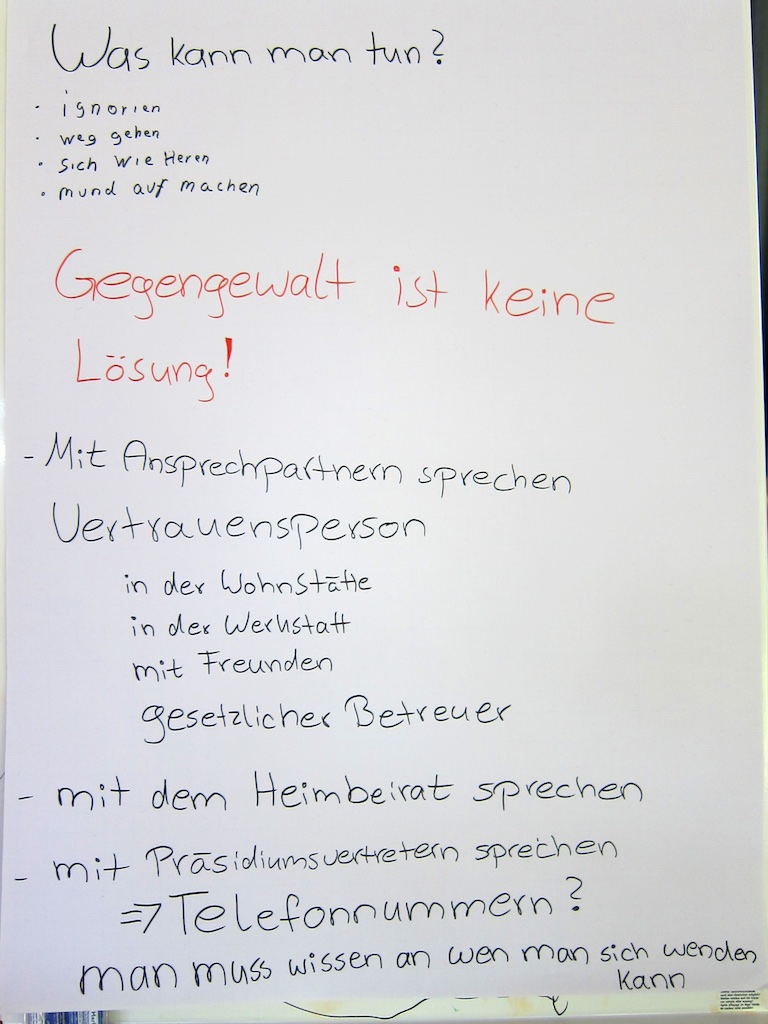 Was kann man tun?
· ignorien
· weg gehen
· sich wie Heren
· mund auf machen
Gegengewalt ist keine
Lösung!
- Mit Ansprechpartnern sprechen
Vertrauensperson
in der Wohnstätte
in der Werkstatt
mit Freunden
gesetzlicher Betreuer
- mit dem Heimbeirat sprechen
- mit Präsidiumsvertretern sprechen
=> Telefonnummern?
man muss wissen an wen man sich wenden
kann